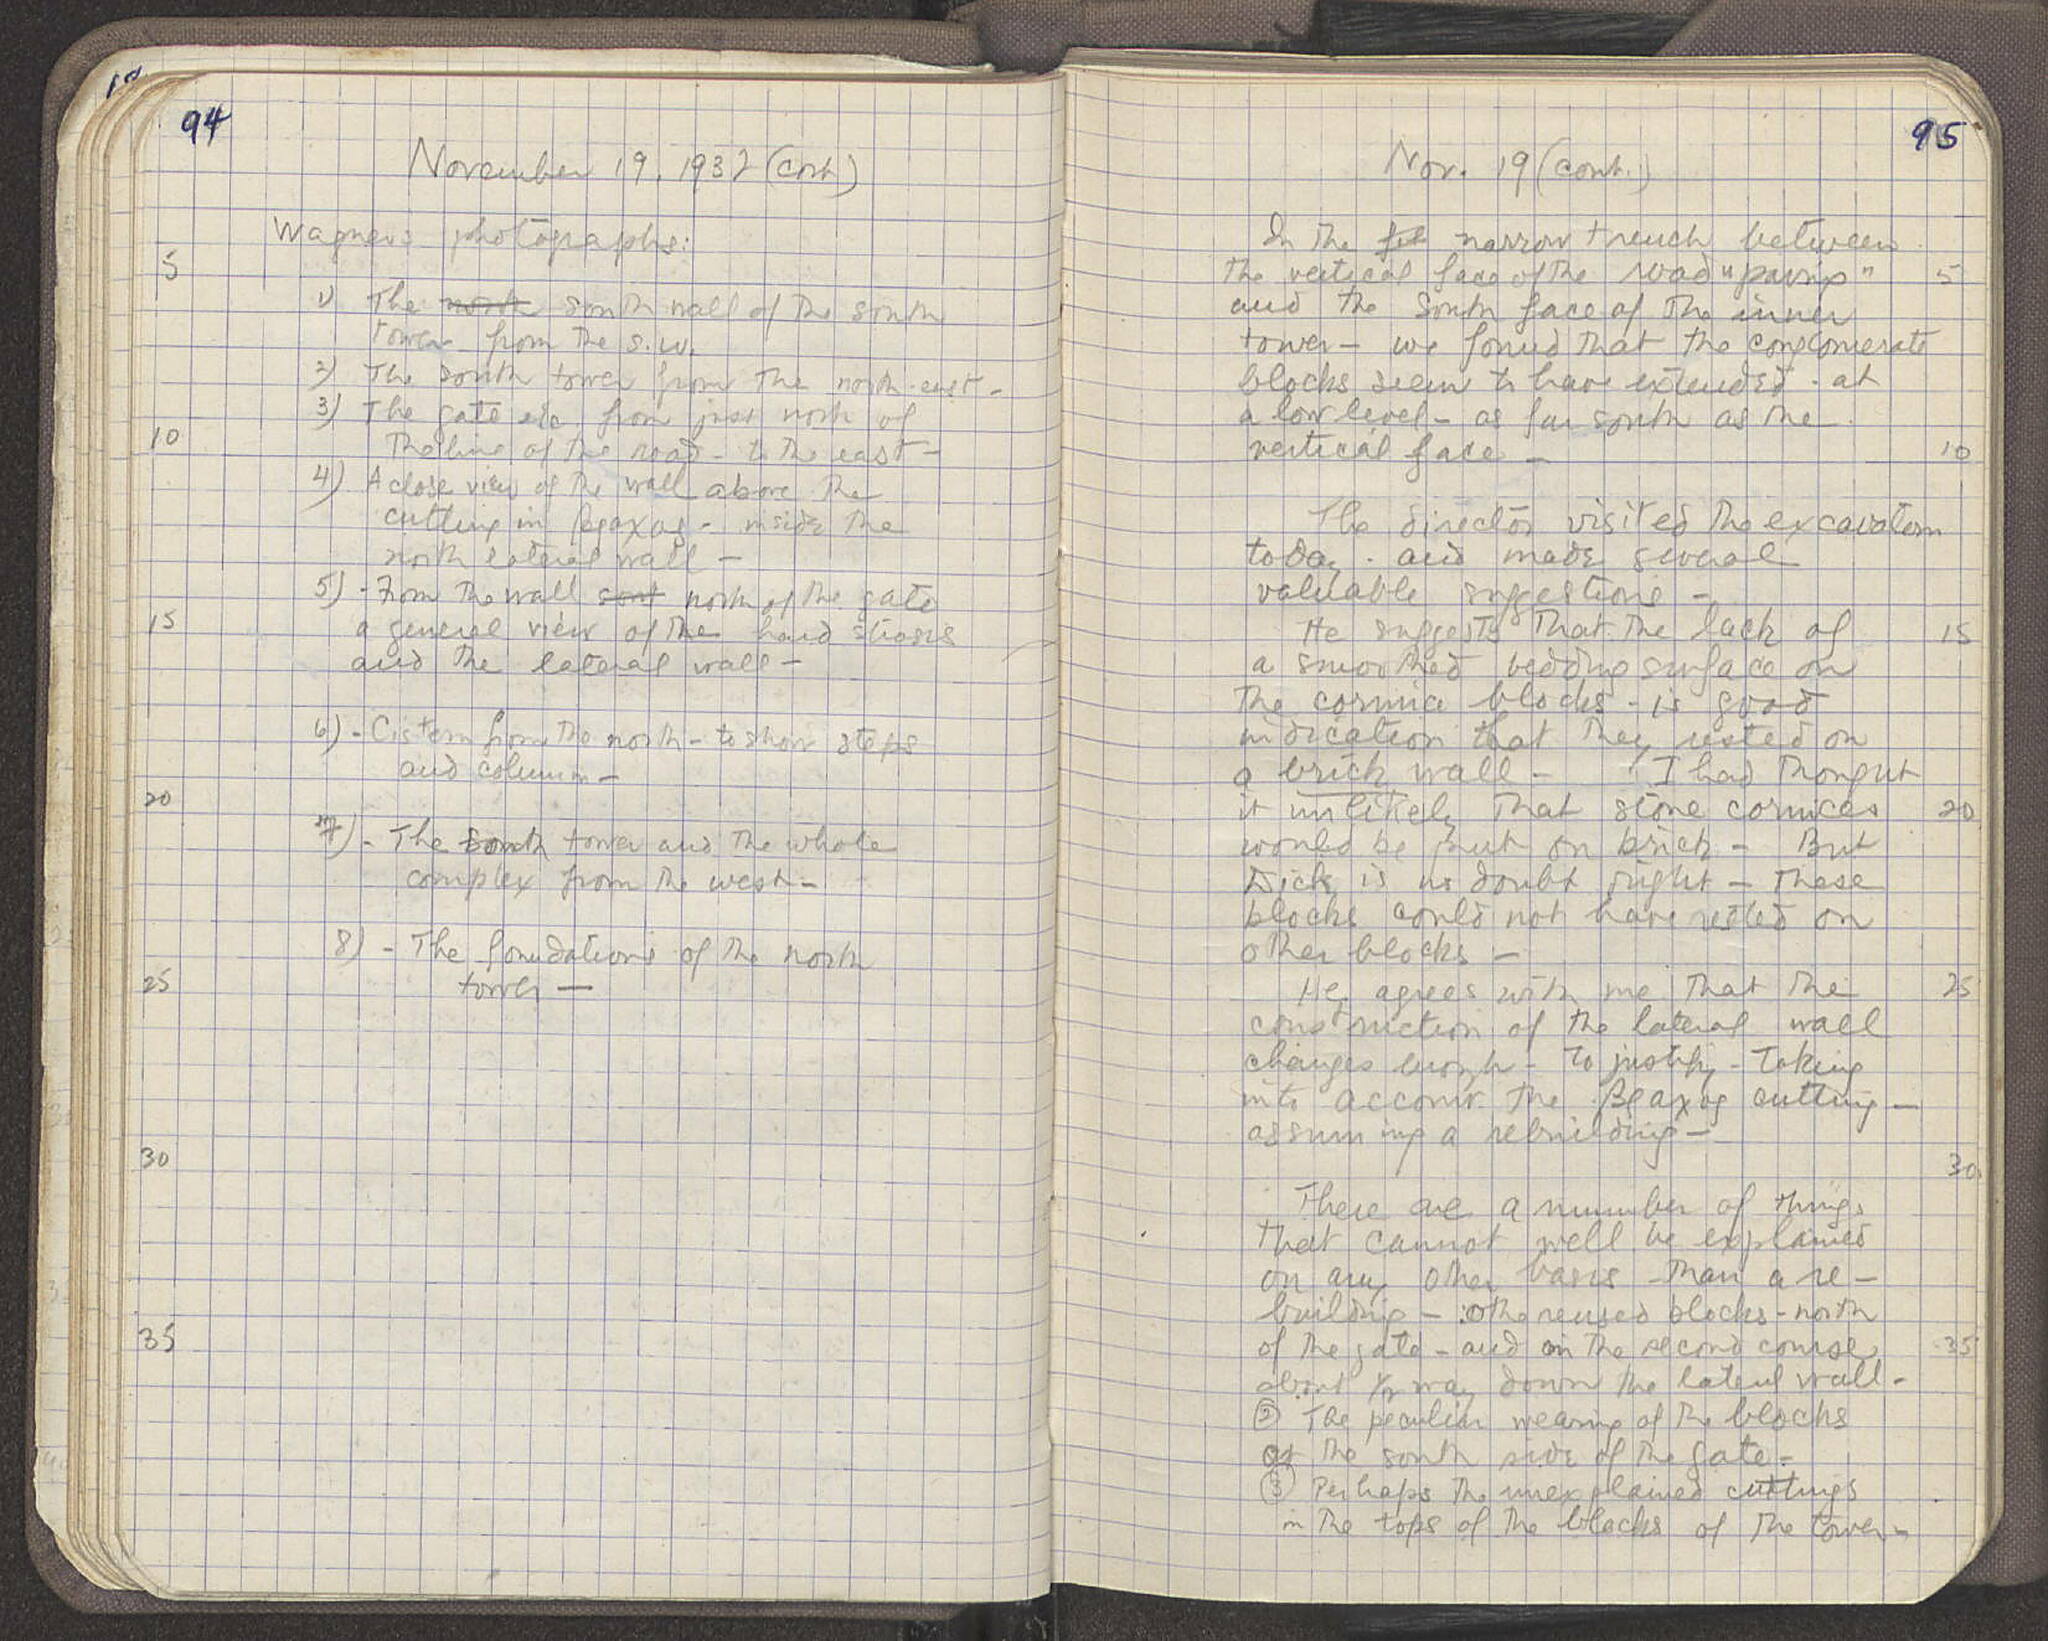 94
November 19, 1937 (cont)
Wagner's photographs:
5
1) The north south wall of the south
tower from the s.w.
2) The south tower from the north-east -
3) The gate etc. from just north of
the line of the road - to the east -
10
4) A close view of the wall above the
cutting in βραχος - inside the
north lateral wall -
5) - From the wall sout north of the gate
15
a general view of the hard stiosis
and the lateral wall -
6) - Cistern from the north - to show steps
and column -
20
7) - The south tower and the whole
complex from the west -
8) - The foundations of the north
25
tower -
30
35
95
Nov. 19 (cont.)
In the narrow trench between
the vertical face of the road "paving" 5
and the south face of the inner
tower - we found that the conglomerate
blocks seem to have extended - at
a low level - as far south as the
vertical face - 10
The director visited the excavation
today - and made several
valuable suggestions -
He suggests that the lack of 15
a smoothed bedding surface on
the cornice blocks - is good
indication that they rested on
a brick wall - I had thought
it unlikely that stone cornices 20
would be put on brick - But
Dick is no doubt right - These
blocks could not have rested on
other blocks -
He agrees with me that the 25
construction of the lateral wall
changes enough - to justify - taking
into account the βραχος cutting -
assuming a rebuilding -
30
There are a number of things
that cannot well be explained
on any other basis than a re-
building - the reused blocks - north
of the gate - and in the second course 35
about 1/2 way down the lateral wall -
② The peculiar wearing of the blocks
at the south side of the gate -
③ Perhaps the unexplained cuttings
in the tops of the blocks of the tower -